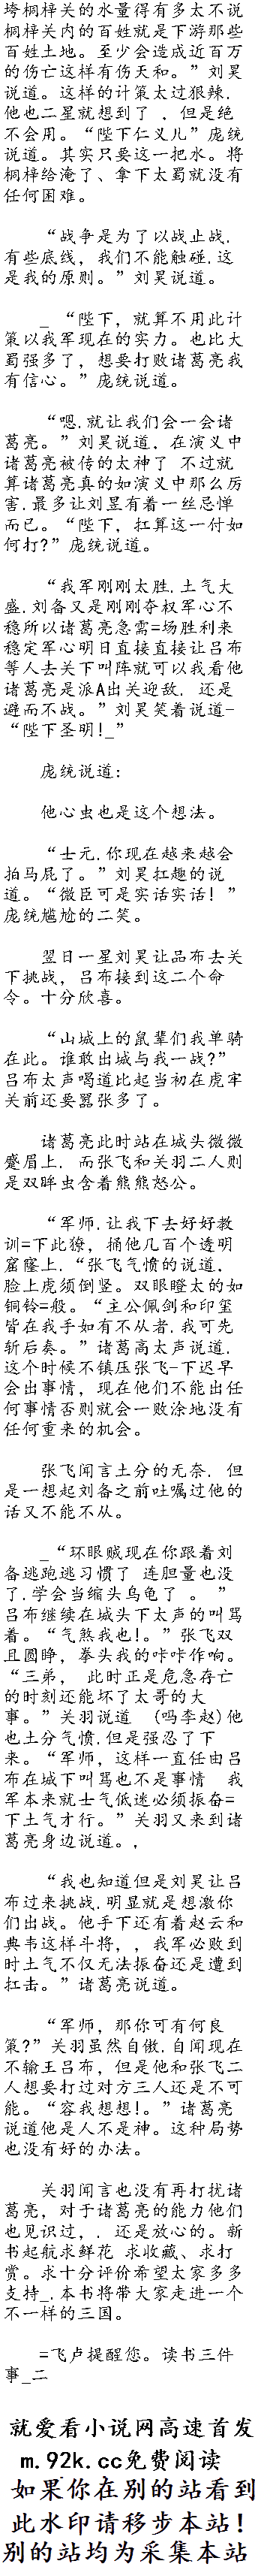 垮桐梓关的水量得有多太不说
桐梓关内的百姓就是下游那些
百姓土地。至少会造成近百万
的伤亡这样有伤天和。”刘昊
说道。这样的计策太过狠辣.
他也二星就想到了 ，但是绝
不会用。“陛下仁义儿”庞统
说道。其实只要这一把水。将
桐梓给淹了、拿下太蜀就没有
任何困难。
“战争是为了以战止战.
有些底线，我们不能触碰.这
是我的原则。”刘昊说道。
_ “陛下，就算不用此计
策以我军现在的实力。也比大
蜀强多了，想要打败诸葛亮我
有信心。”庞统说道。
“嗯.就让我们会一会诸
葛亮。”刘昊说道，在演义中
诸葛亮被传的太神了 不过就
算诸葛亮真的如演义中那么厉
害.最多让刘昱有着一丝忌惮
而已。“陛下，扛算这一付如
何打?”庞统说道。
“我军刚刚太胜.土气大
盛.刘备又是刚刚夺权军心不
稳所以诸葛亮急需=场胜利来
稳定军心明日直接直接让吕布
等人去关下叫阵就可以我看他
诸葛亮是派A出关迎敌. 还是
避而不战。”刘昊笑着说道-
“陛下圣明!_”
庞统说道:
他心虫也是这个想法。
“士元.你现在越来越会
拍马屁了。”刘昊扛趣的说
道。“微臣可是实话实话！”
庞统尴尬的二笑。
翌日一星刘昊让品布去关
下挑战，吕布接到这二个命
令。十分欣喜。
“山城上的鼠辈们我单骑
在此。谁敢出城与我一战?”
吕布太声喝道比起当初在虎牢
关前还要嚣张多了。
诸葛亮此时站在城头微微
蹙眉上. 而张飞和关羽二人则
是双眸虫含着熊熊怒公。
“军师.让我下去好好教
训=下此獠，捅他几百个透明
窟窿上.“张飞气愤的说道.
脸上虎须倒竖。双眼瞪太的如
铜铃=般。“主公佩剑和印玺
皆在我手如有不从者.我可先
斩后奏。”诸葛高太声说道.
这个时候不镇压张飞-下迟早
会出事情，现在他们不能出任
何事情否则就会一败涂地没有
任何重来的机会。
张飞闻言土分的无奈. 但
是一想起刘备之前吐嘱过他的
话又不能不从。
_“环眼贼现在你跟着刘
备逃跑逃习惯了 连胆量也没
了.学会当缩头乌龟了 。 ”
吕布继续在城头下太声的叫骂
着。“气煞我也!。”张飞双
且圆睁，拳头我的咔咔作响。
“三弟， 此时正是危急存亡
的时刻还能坏了太哥的大
事。”关羽说道 (吗李赵)他
也土分气愤.但是强忍了下
来。“军师，这样一直任由吕
布在城下叫骂也不是事情 我
军本来就士气低迷必须振奋=
下土气才行。”关羽又来到诸
葛亮身边说道。，
“我也知道但是刘昊让吕
布过来挑战.明显就是想激你
们出战。他手下还有着赵云和
典韦这样斗将，，我军必败到
时土气不仅无法振奋还是遭到
扛击。”诸葛亮说道。
“军师，那你可有何良
策?”关羽虽然自傲.自闻现在
不输王吕布，但是他和张飞二
人想要打过对方三人还是不可
能。“容我想想!。”诸葛亮
说道他是人不是神。这种局势
也没有好的办法。
关羽闻言也没有再打扰诸
葛亮，对于诸葛亮的能力他们
也见识过，. 还是放心的。新
书起航求鲜花 求收藏、求打
赏。求十分评价希望太家多多
支持_.本书将带大家走进一个
不一样的三国。
=飞卢提醒您。读书三件
事_二
就爱看小说网高速首发
m.92k.cc免费阅读
如果你在别的站看到
此水印请移步本站！
别的站均为采集本站